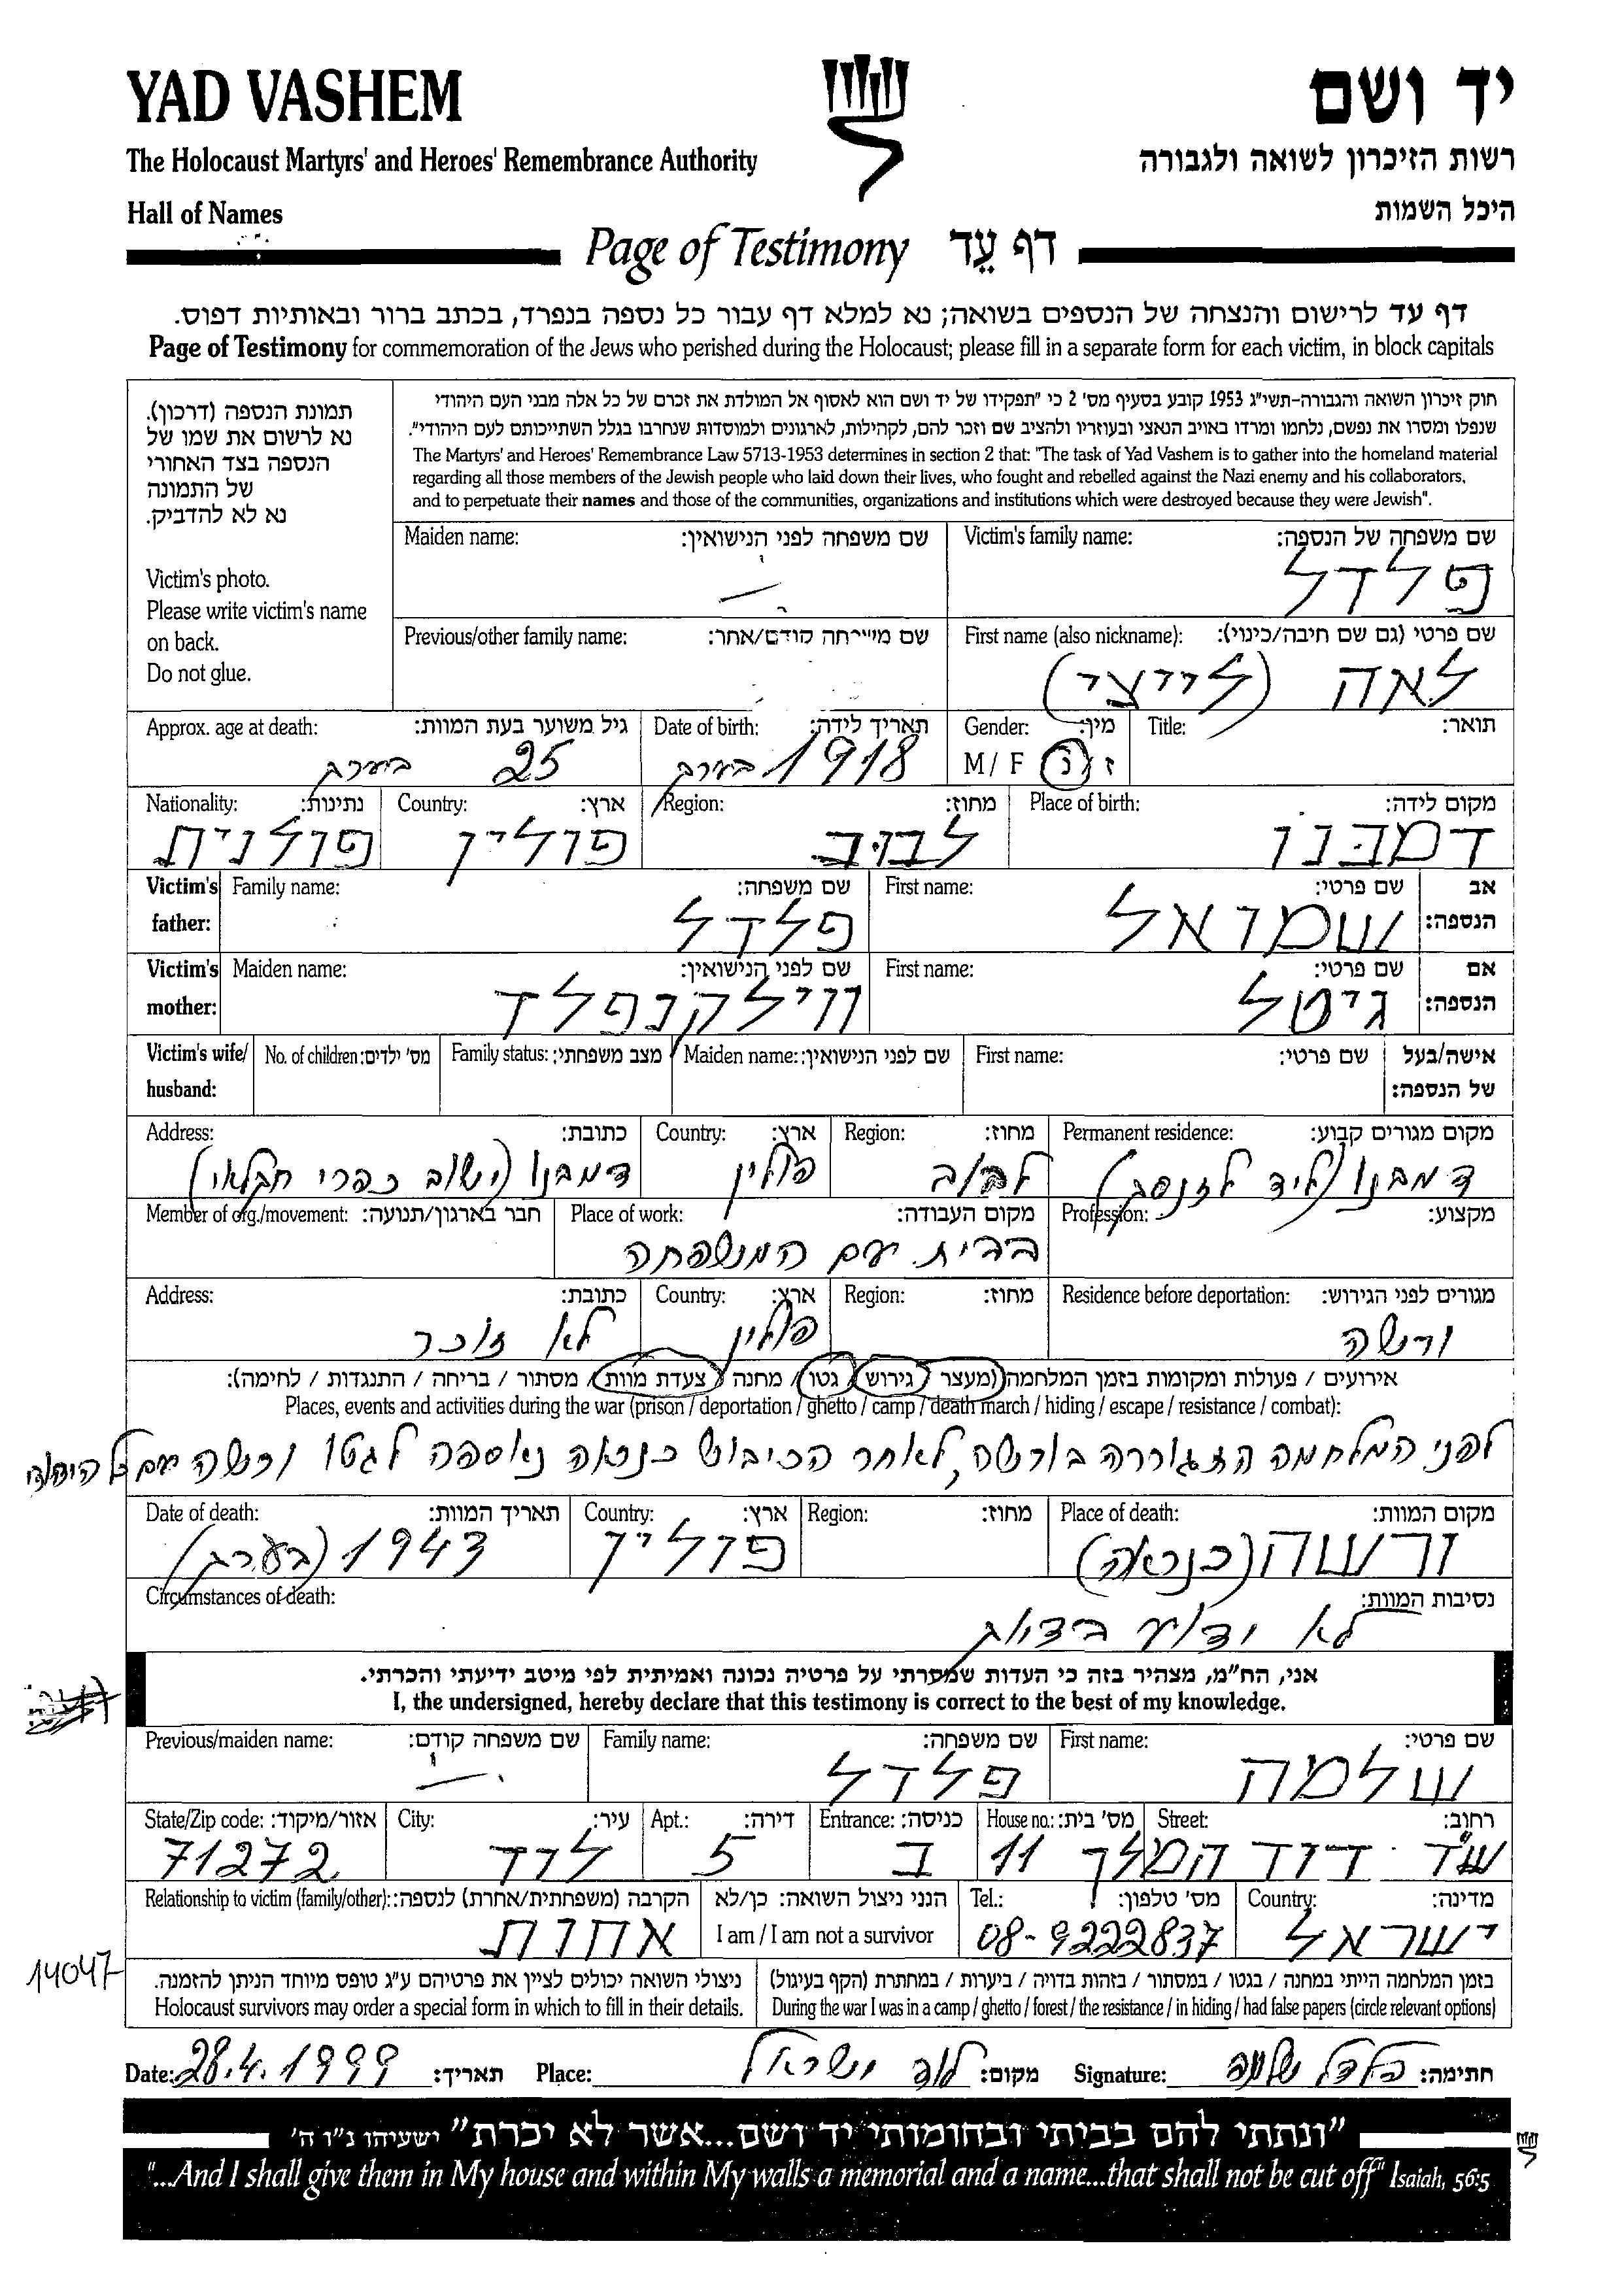 YAD VASHEM
יד ושם
The Holocaust Martyrs' and Heroes' Remembrance Authority
רשות הזיכרון לשואה ולגבורה
Hall of Names
היכל השמות
Page of Testimony דף עֵד
דף עד לרישום והנצחה של הנספים בשואה; נא למלא דף עבור כל נספה בנפרד, בכתב ברור ובאותיות דפוס.
Page of Testimony for commemoration of the Jews who perished during the Holocaust; please fill in a separate form for each victim, in block capitals
תמונת הנספה (דרכון).
נא לרשום את שמו של
הנספה בצד האחורי
של התמונה
נא לא להדביק.
Victim's photo.
Please write victim's name
on back.
Do not glue.
חוק זיכרון השואה והגבורה-תשי"ג 1953 קובע בסעיף מס' 2 כי "תפקידו של יד ושם הוא לאסוף אל המולדת את זכרם של כל אלה מבני העם היהודי
שנפלו ומסרו את נפשם, נלחמו ומרדו באויב הנאצי ובעוזריו ולהציב שם וזכר להם, לקהילות, לארגונים ולמוסדות שנחרבו בגלל השתייכותם לעם היהודי".
The Martyrs' and Heroes' Remembrance Law 5713-1953 determines in section 2 that: "The task of Yad Vashem is to gather into the homeland material
regarding all those members of the Jewish people who laid down their lives, who fought and rebelled against the Nazi enemy and his collaborators,
and to perpetuate their names and those of the communities, organizations and institutions which were destroyed because they were Jewish".
Victim's family name: שם משפחה של הנספה:
פלדל
Maiden name: שם משפחה לפני הנישואין:
First name (also nickname): שם פרטי (גם שם חיבה/כינוי):
לאה (לייצי)
Previous/other family name: שם משפחה קודם/אחר:
Title: תואר:
Gender: מין:
M / F ז / נ
Date of birth: תאריך לידה:
1918 בערך
Approx. age at death: גיל משוער בעת המוות:
25 בערך
Place of birth: מקום לידה:
דמבנו
Region: מחוז:
לבוב
Country: ארץ:
פולין
Nationality: נתינות:
פולנית
Victim's father: אב הנספה:
First name: שם פרטי:
שמואל
Family name: שם משפחה:
פלדל
Victim's mother: אם הנספה:
First name: שם פרטי:
גיטל
Maiden name: שם לפני הנישואין:
ווילקנפלד
Victim's wife/ husband: אישה/בעל של הנספה:
First name: שם פרטי:
Maiden name: שם לפני הנישואין:
Family status: מצב משפחתי:
No. of children: מס' ילדים:
Permanent residence: מקום מגורים קבוע:
דמבנו (ליד לזנסק)
Region: מחוז:
לבוב
Country: ארץ:
פולין
Address: כתובת:
דמבנו (ישוב כפרי חקלאי)
Profession: מקצוע:
Place of work: מקום העבודה:
בבית עם המשפחה
Member of org./movement: חבר בארגון/תנועה:
Residence before deportation: מגורים לפני הגירוש:
ורשה
Region: מחוז:
Country: ארץ:
פולין
Address: כתובת:
לא זוכר
אירועים / פעולות ומקומות בזמן המלחמה (מעצר / גירוש / גטו / מחנה / צעדת מוות / מסתור / בריחה / התנגדות / לחימה):
Places, events and activities during the war (prison / deportation / ghetto / camp / death march / hiding / escape / resistance / combat):
לפני המלחמה התגוררה בורשה, לאחר הכיבוש כנראה נאספה לגטו ורשה עם כל
Place of death: מקום המוות:
ורשה (כנראה)
Region: מחוז:
Country: ארץ:
פולין
Date of death: תאריך המוות:
1943 (בערך)
Circumstances of death: נסיבות המוות:
לא ידוע בדיוק
אני, הח"מ, מצהיר בזה כי העדות שמסרתי על פרטיה נכונה ואמיתית לפי מיטב ידיעתי והכרתי.
I, the undersigned, hereby declare that this testimony is correct to the best of my knowledge.
First name: שם פרטי:
שלמה
Family name: שם משפחה:
פלדל
Previous/maiden name: שם משפחה קודם:
Street: רחוב:
שד דוד המלך
House no.: מס' בית:
11
Entrance: כניסה:
ב
Apt.: דירה:
5
City: עיר:
לוד
State/Zip code: אזור/מיקוד:
71272
Country: מדינה:
ישראל
Tel.: מס' טלפון:
08-9222837
הנני ניצול השואה: כן/לא
I am / I am not a survivor
Relationship to victim (family/other): הקרבה (משפחתית/אחרת) לנספה:
אחות
14047
בזמן המלחמה הייתי במחנה / בגטו / במסתור / בזהות בדויה / ביערות / במחתרת (הקף בעיגול)
During the war I was in a camp / ghetto / forest / the resistance / in hiding / had false papers (circle relevant options)
ניצולי השואה יכולים לציין את פרטיהם ע"ג טופס מיוחד הניתן להזמנה.
Holocaust survivors may order a special form in which to fill in their details.
Date: 28.4.1999 תאריך: Place: לוד ישראל מקום: Signature: פלדל שלמה חתימה:
"ונתתי להם בביתי ובחומותי יד ושם...אשר לא יכרת" ישעיהו נ"ו ה'
"...And I shall give them in My house and within My walls a memorial and a name...that shall not be cut off" Isaiah, 56:5